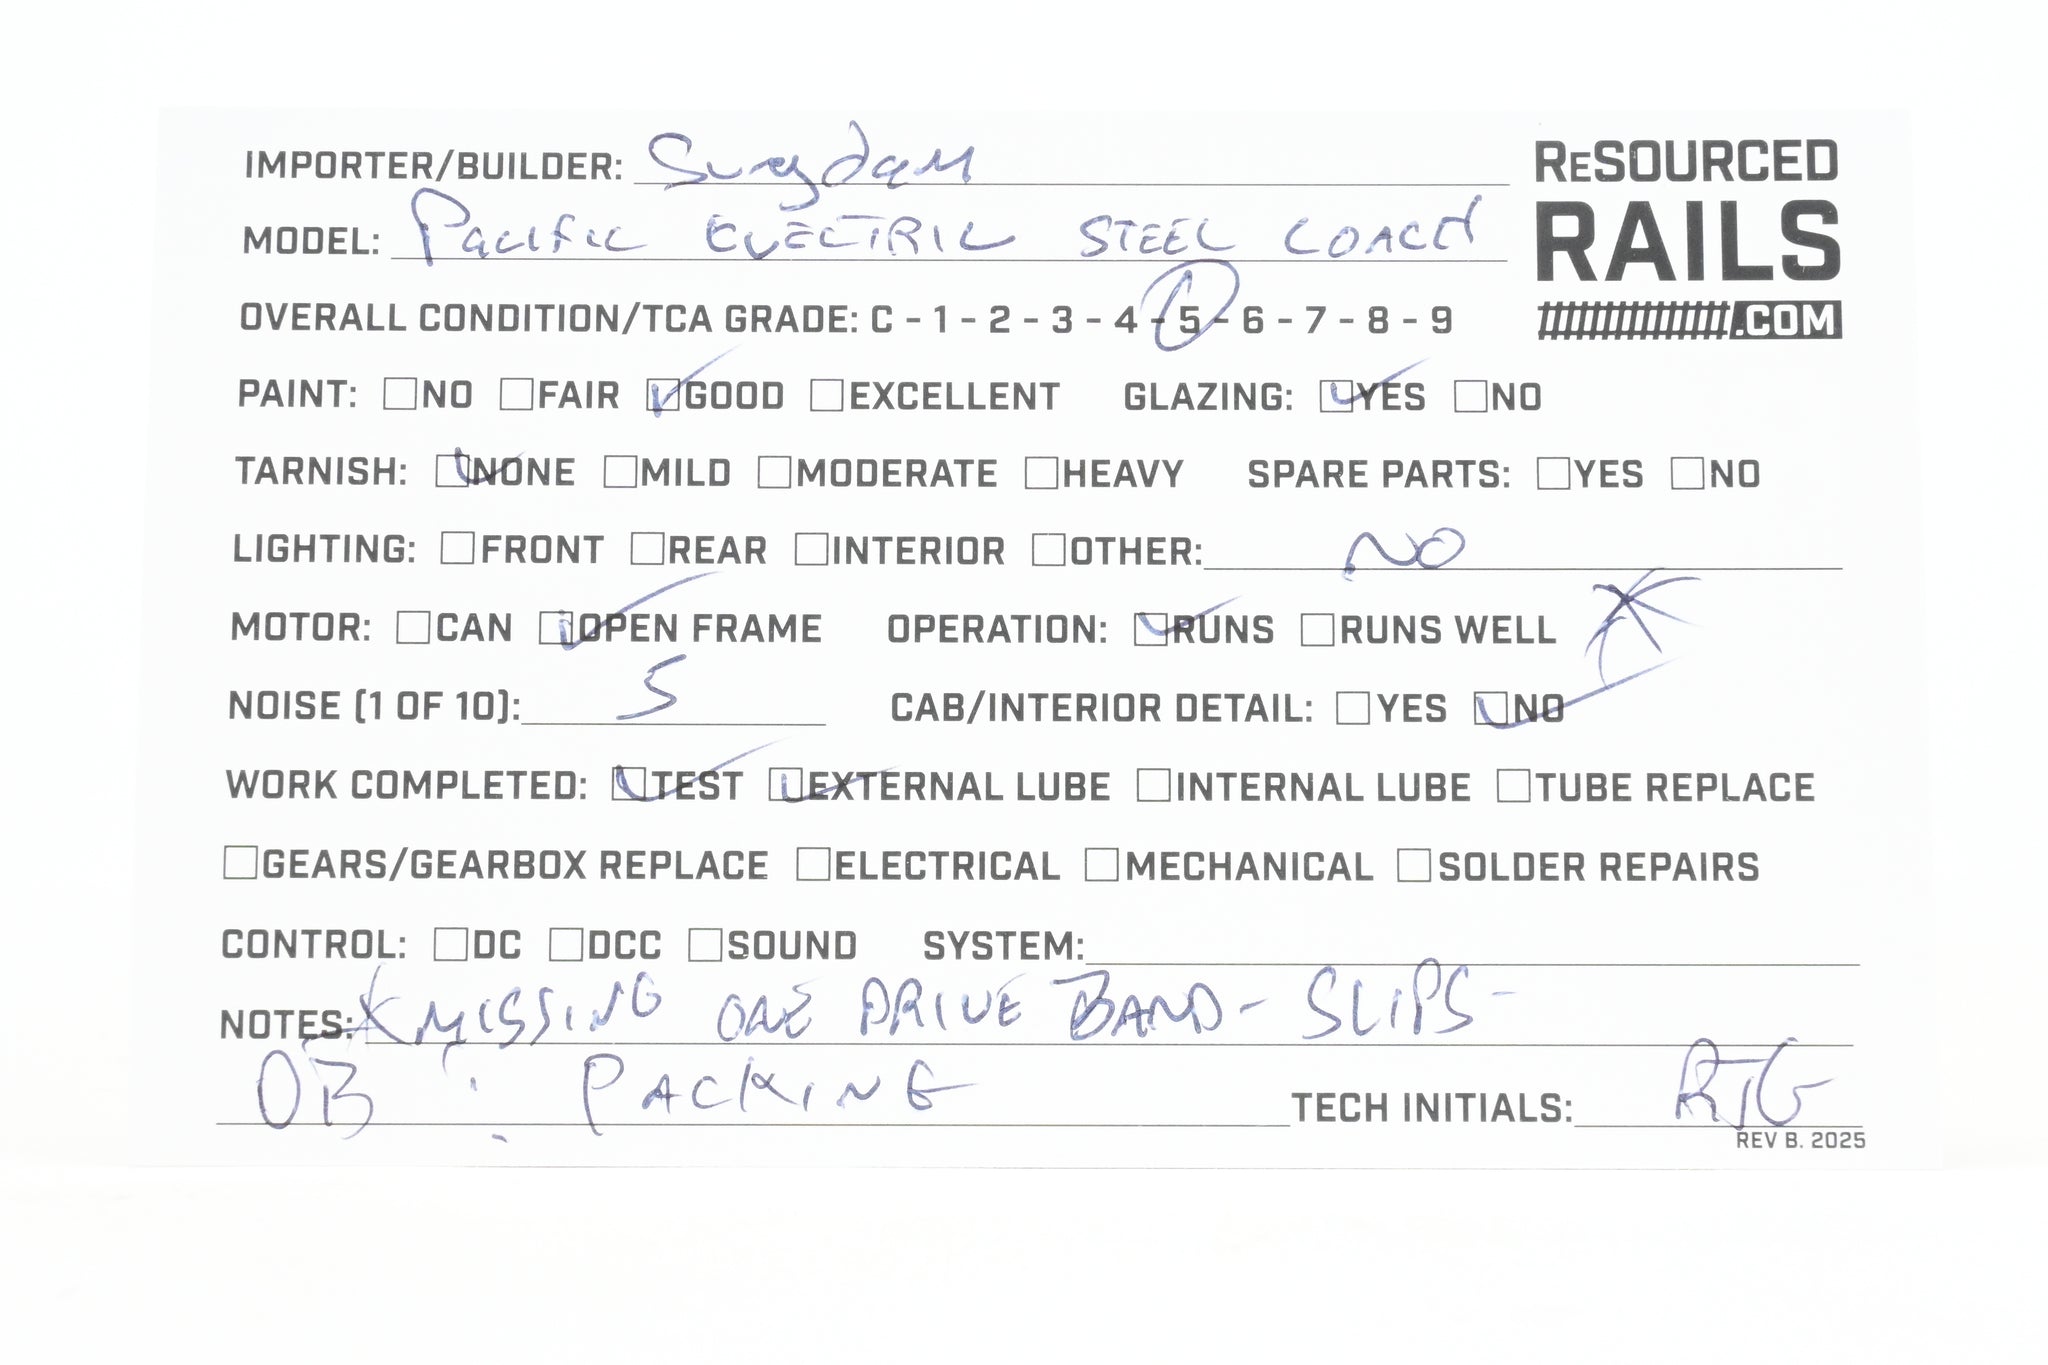 IMPORTER/BUILDER: Suydam
ReSOURCED
RAILS
.COM
MODEL: Pacific ELECTRIC STEEL COACH
OVERALL CONDITION/TCA GRADE: C - 1 - 2 - 3 - 4 - 5 - 6 - 7 - 8 - 9
PAINT: ☐NO ☐FAIR ☑GOOD ☐EXCELLENT GLAZING: ☑YES ☐NO
TARNISH: ☑NONE ☐MILD ☐MODERATE ☐HEAVY SPARE PARTS: ☐YES ☐NO
LIGHTING: ☐FRONT ☐REAR ☐INTERIOR ☐OTHER: NO
MOTOR: ☐CAN ☑OPEN FRAME OPERATION: ☑RUNS ☐RUNS WELL *
NOISE (1 OF 10): 5 CAB/INTERIOR DETAIL: ☐YES ☑NO
WORK COMPLETED: ☑TEST ☑EXTERNAL LUBE ☐INTERNAL LUBE ☐TUBE REPLACE
☐GEARS/GEARBOX REPLACE ☐ELECTRICAL ☐MECHANICAL ☐SOLDER REPAIRS
CONTROL: ☐DC ☐DCC ☐SOUND SYSTEM:
NOTES: * MISSING ONE DRIVE BAND - SLIPS -
OB : PACKING TECH INITIALS: RTG
REV B. 2025